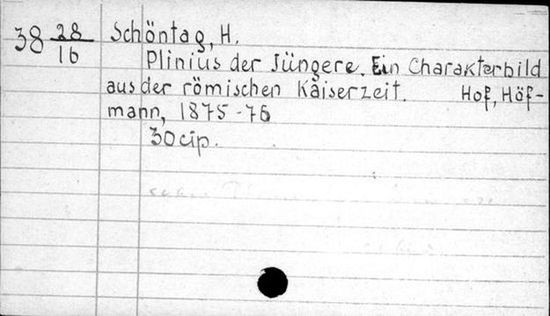 38 28/16 Schöntag, H.
Plinius der Jüngere. Ein Charakterbild
aus der römischen Kaiserzeit. Hof, Höf-
mann, 1875-76
30 cip.